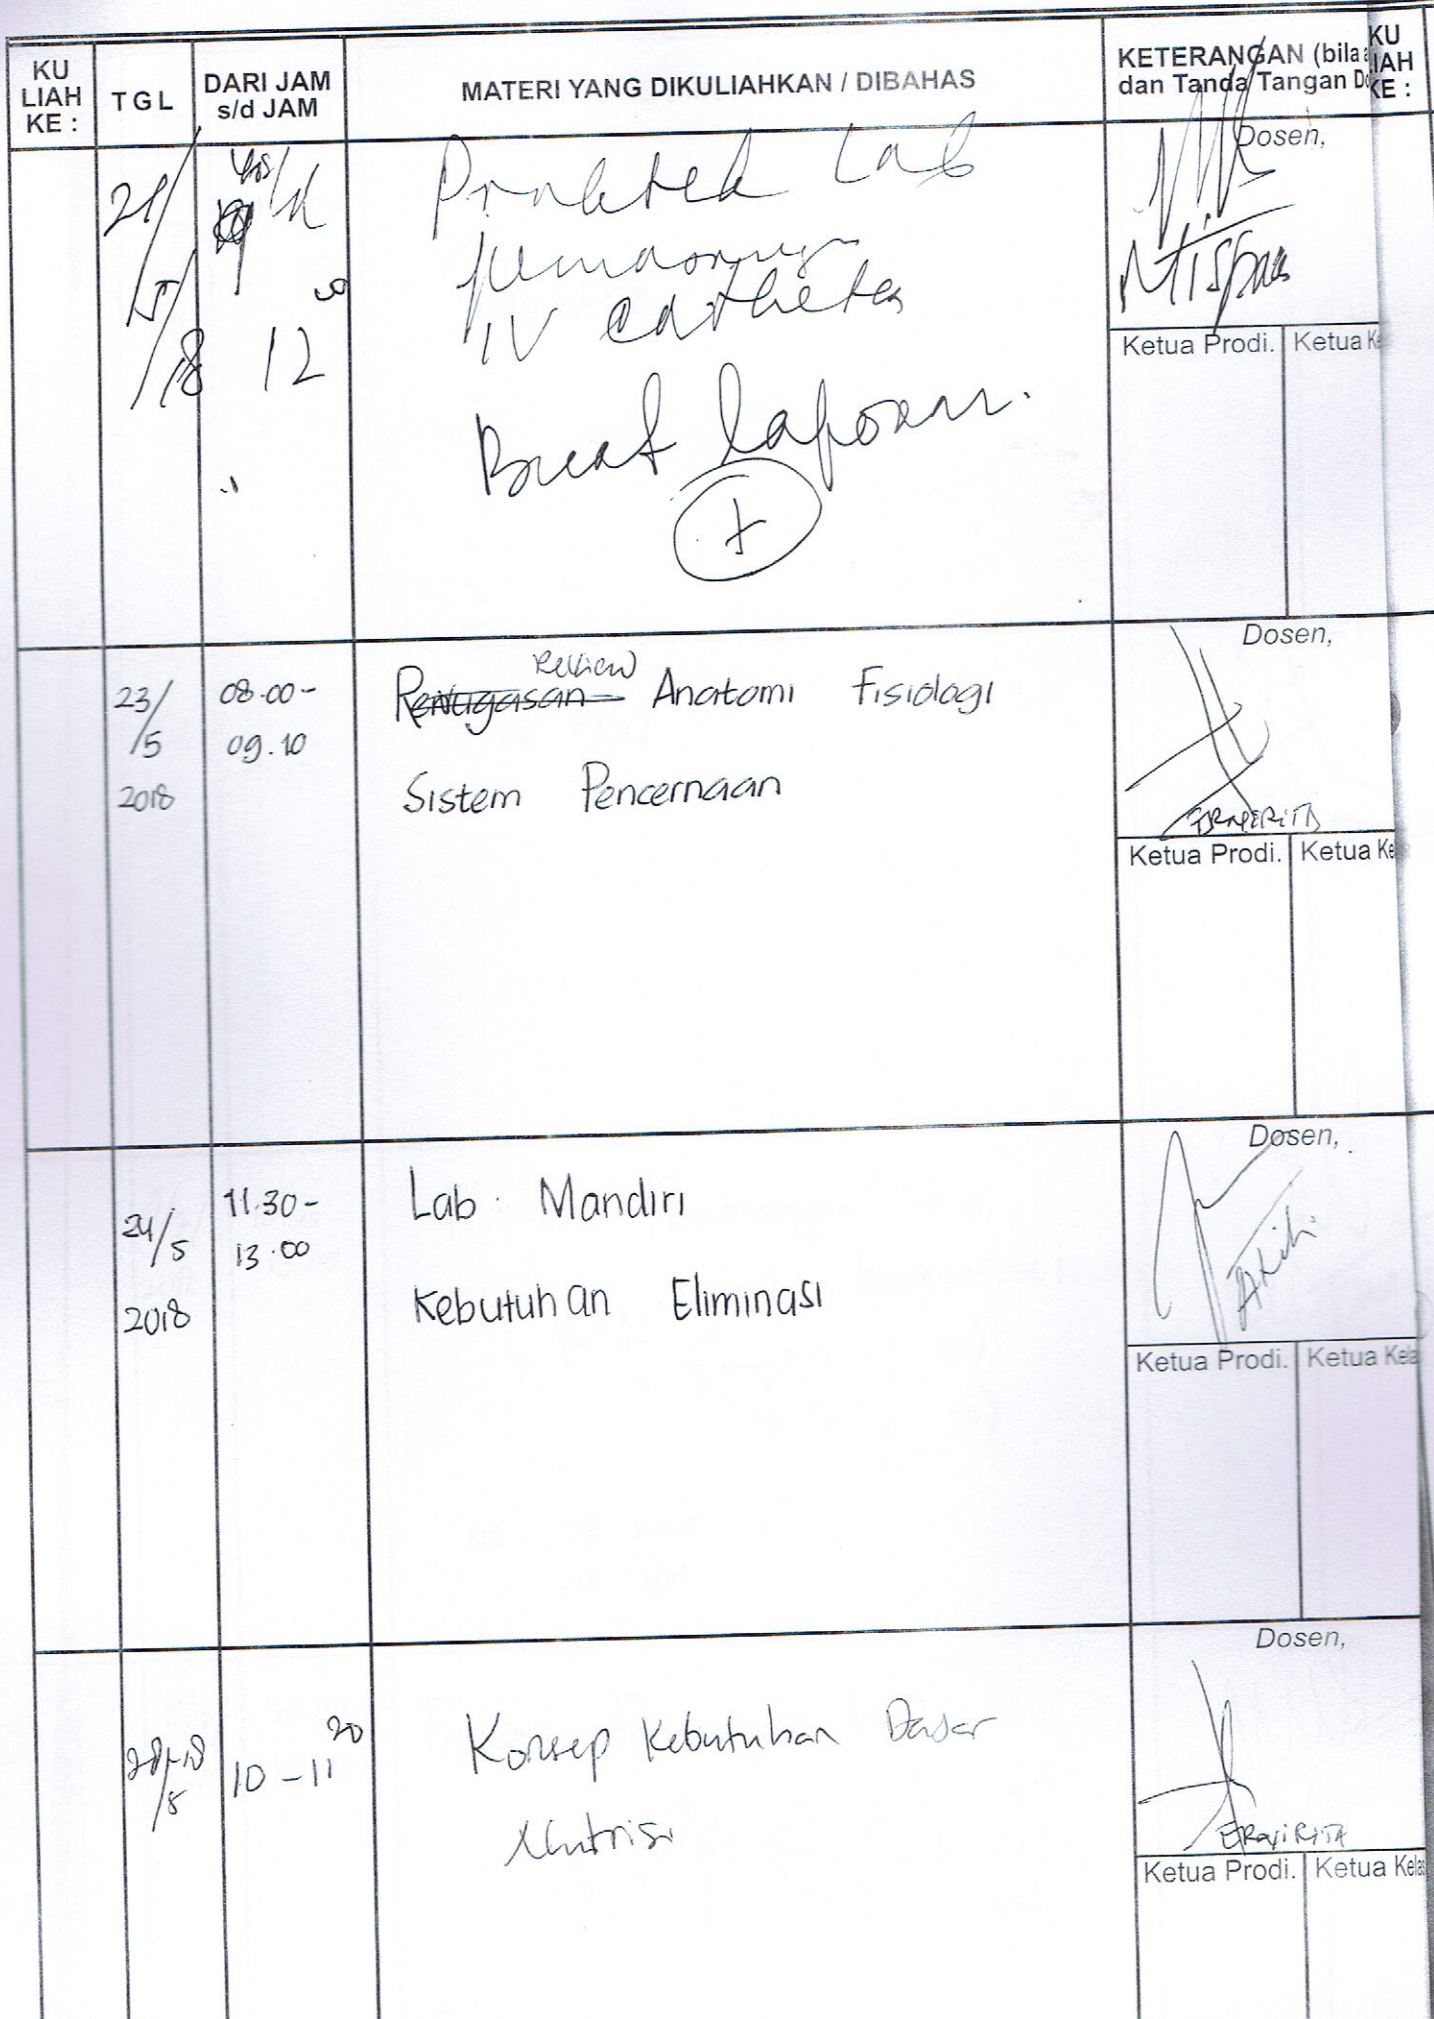 KU LIAH KE :
TGL
DARI JAM s/d JAM
MATERI YANG DIKULIAHKAN / DIBAHAS
KETERANGAN (bila
dan Tanda Tangan
KU
IAH
KE :
21/5/18
s/d
12
Praktek Lab
pemasangan
IV Catheter
Buat laporan.
+
Dosen,
Ketua Prodi.
Ketua
23/5
2018
08.00-
09.10
Review
Penugasan Anatomi Fisiologi
Sistem Pencernaan
Dosen,
Ketua Prodi.
Ketua Ke
24/5
2018
11.30-
13.00
Lab. Mandiri
Kebutuhan Eliminasi
Dosen,
Ketua Prodi.
Ketua Kela
10 - 11 20
Konsep Kebutuhan Dasar
Nutrisi
Dosen,
Ketua Prodi.
Ketua Kelas